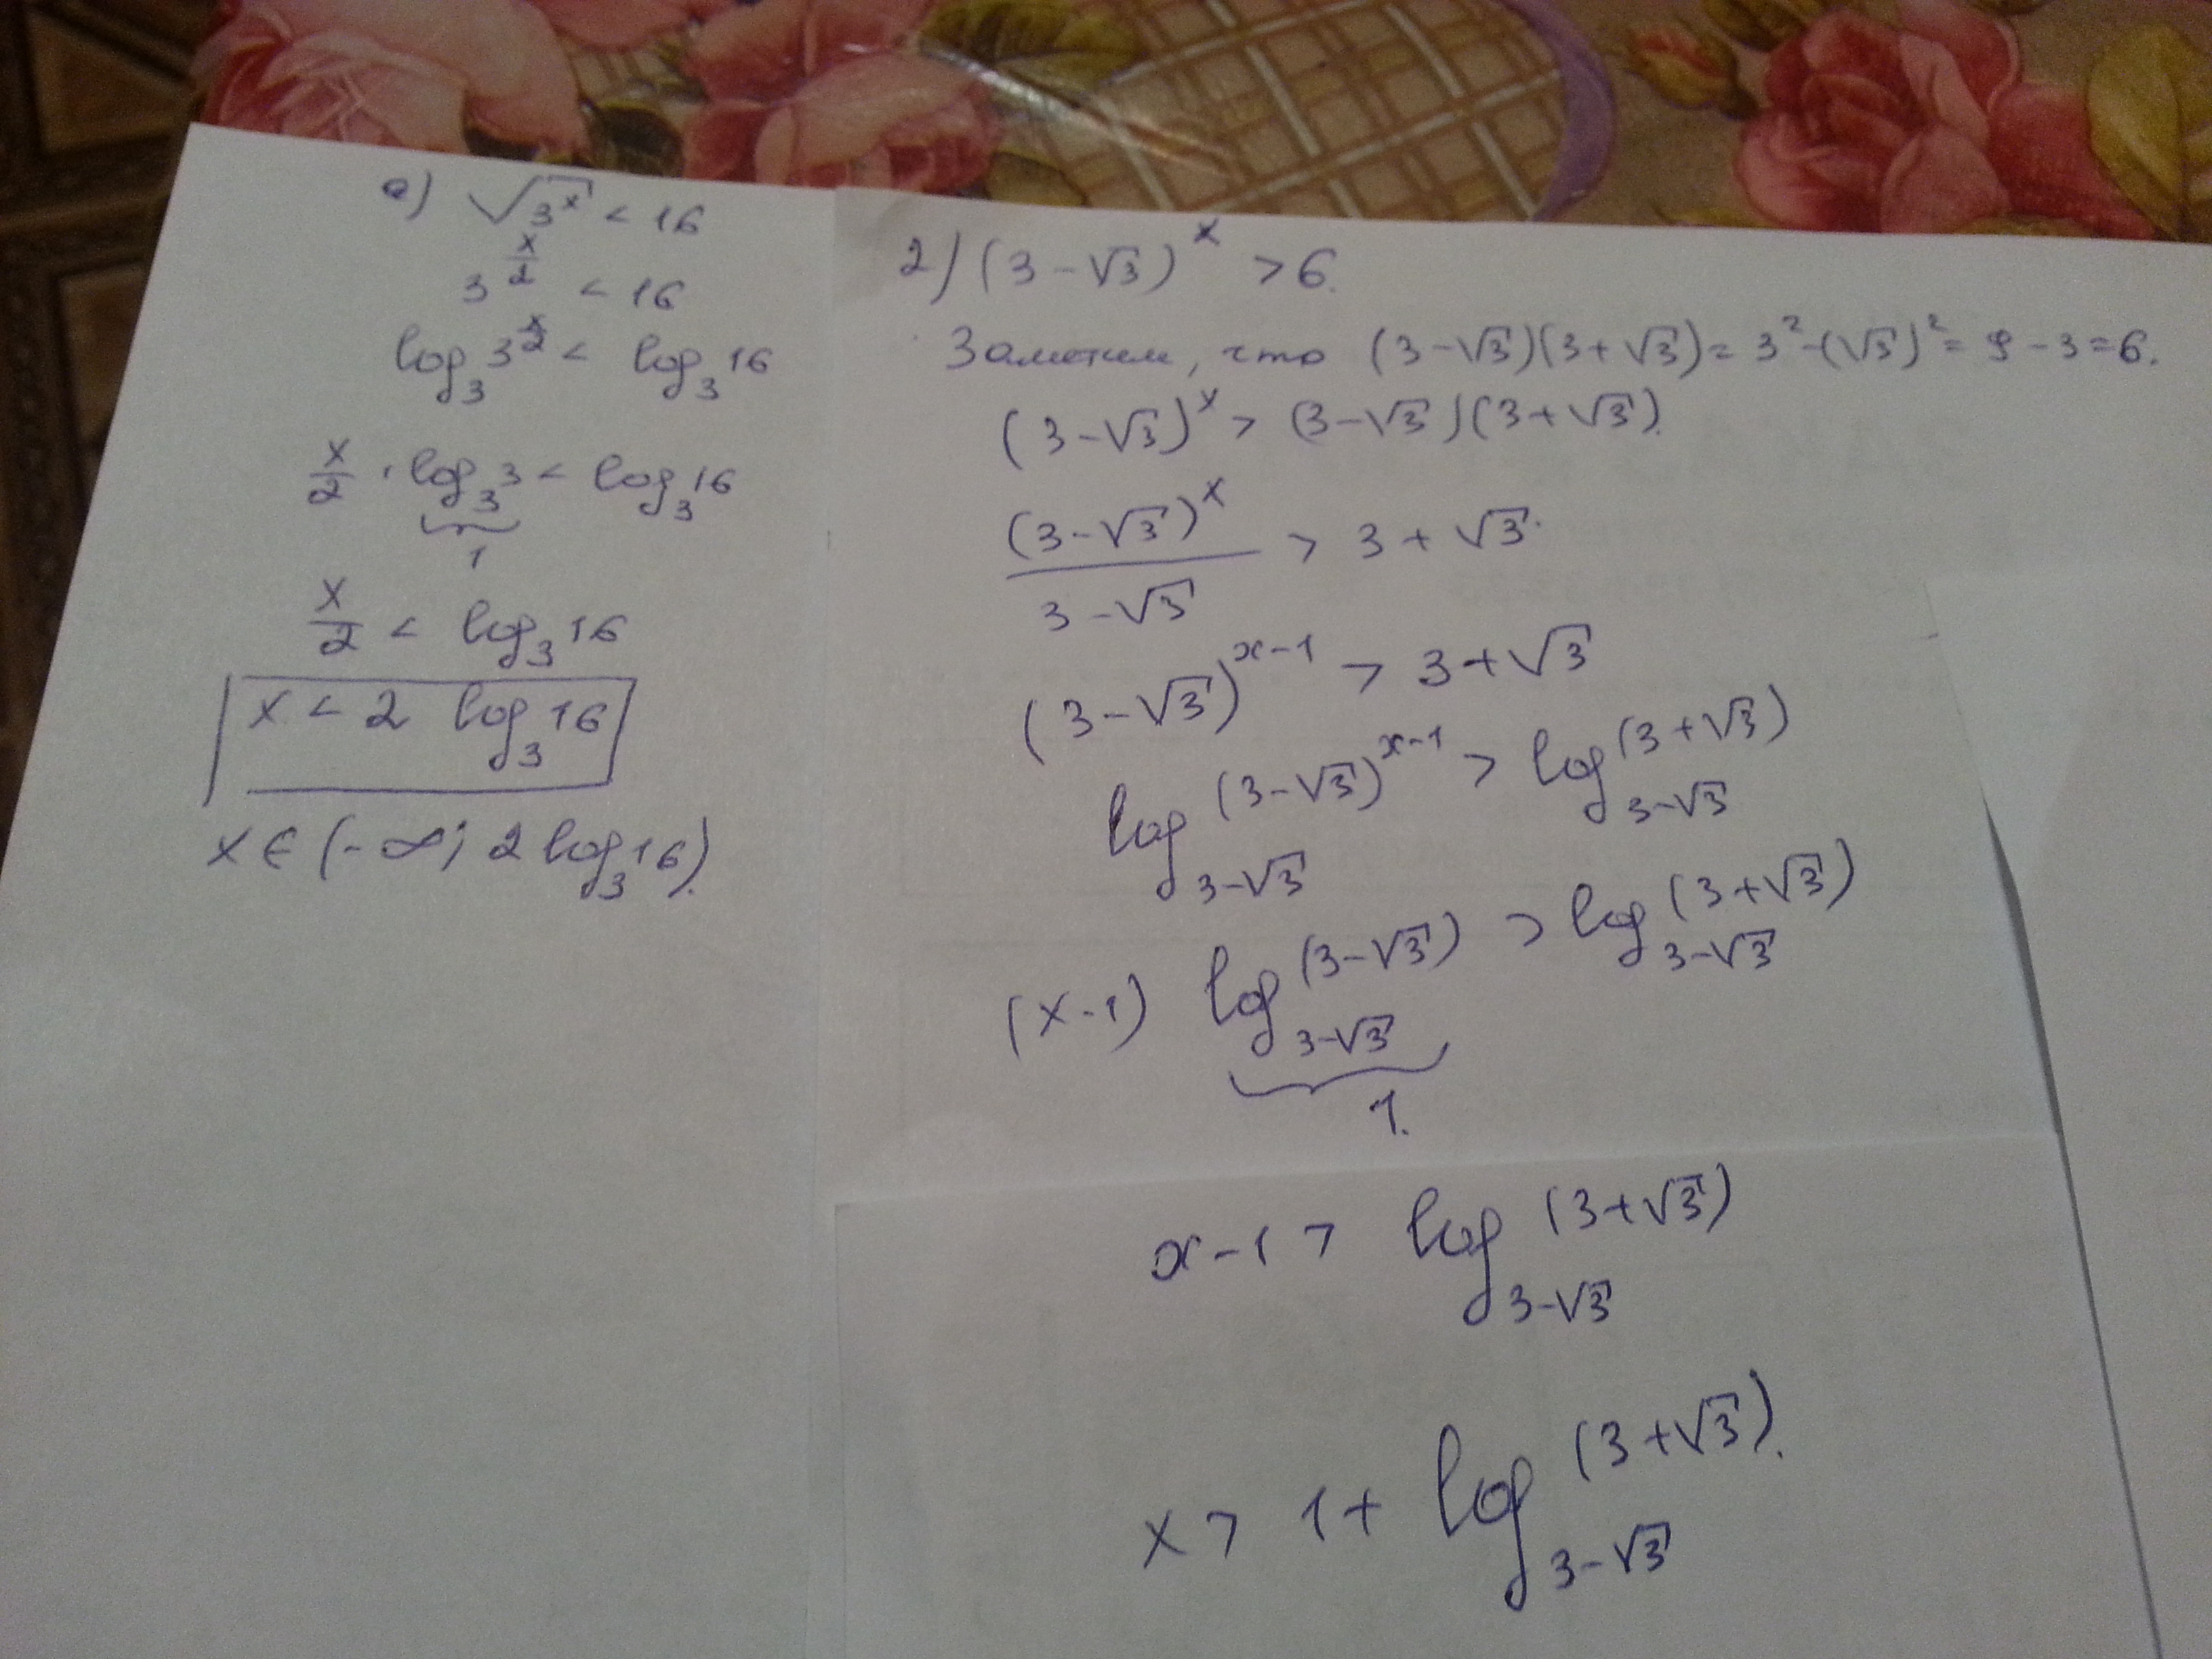 а) √3ˣ < 16
3^(x/2) < 16
log₃ 3^(x/2) < log₃ 16
x/2 · log₃ 3 < log₃ 16
1
x/2 < log₃ 16
x < 2 log₃ 16
x ∈ (-∞; 2 log₃ 16).
2) (3-√3)ˣ > 6.
Заметим, что (3-√3)(3+√3) = 3² - (√3)² = 9 - 3 = 6.
(3-√3)ˣ > (3-√3)(3+√3).
(3-√3)ˣ / (3-√3) > 3 + √3.
(3-√3)^(x-1) > 3 + √3
log_(3-√3) (3-√3)^(x-1) > log_(3-√3) (3+√3)
(x-1) log_(3-√3) (3-√3) > log_(3-√3) (3+√3)
1.
x - 1 > log_(3-√3) (3+√3)
x > 1 + log_(3-√3) (3+√3).